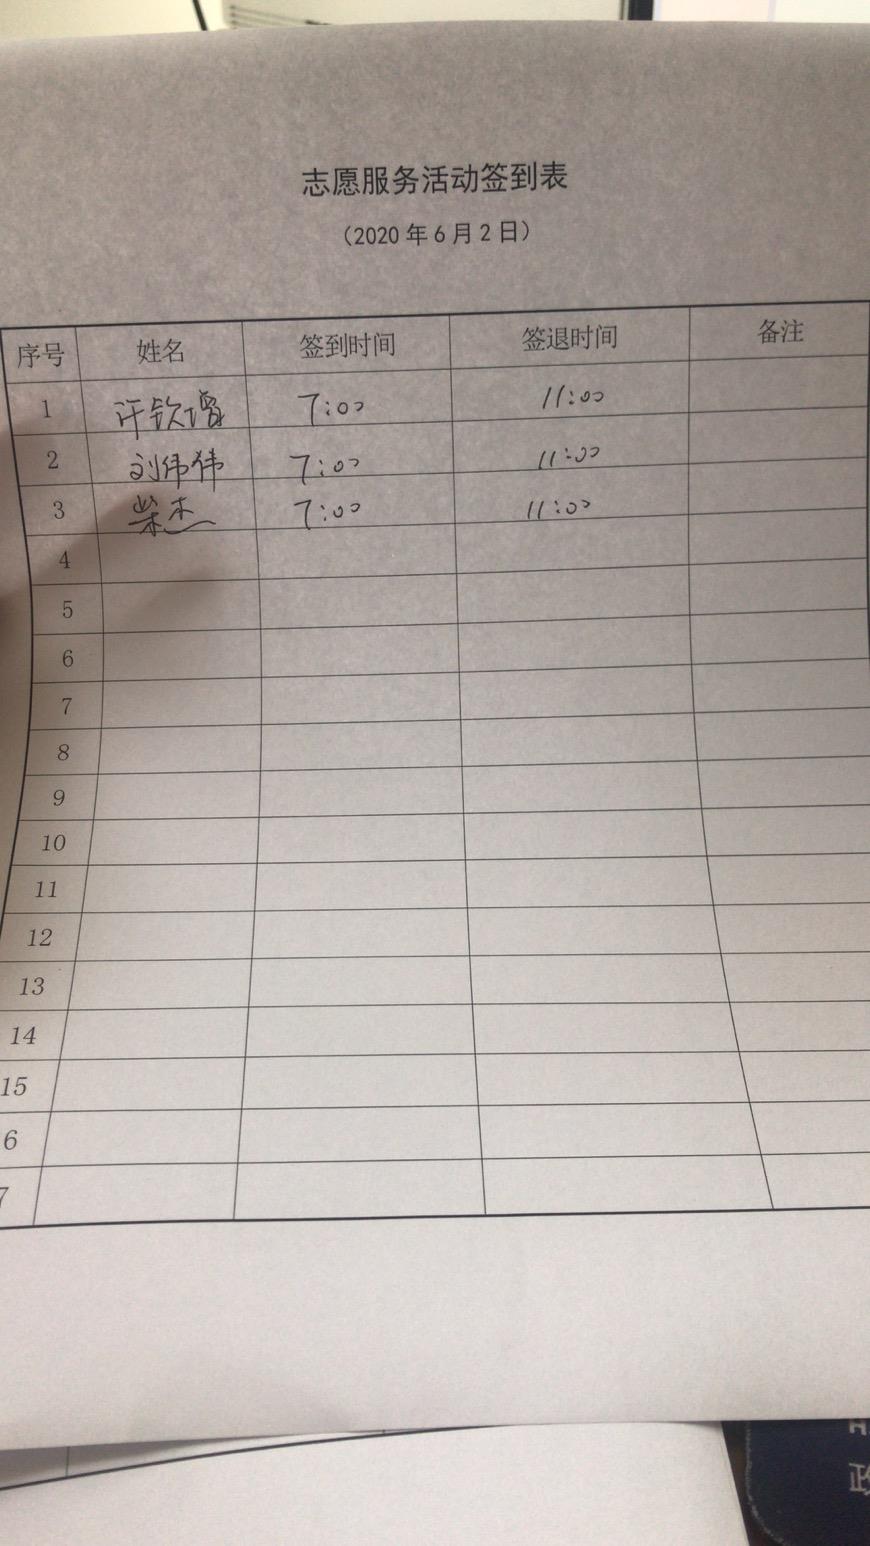 志愿服务活动签到表
（2020 年 6 月 2 日）
序号 姓名 签到时间 签退时间 备注
1 许钦增 7:00 11:00
2 刘伟伟 7:00 11:00
3 柴杰 7:00 11:00
4
5
6
7
8
9
10
11
12
13
14
15
6
7
政